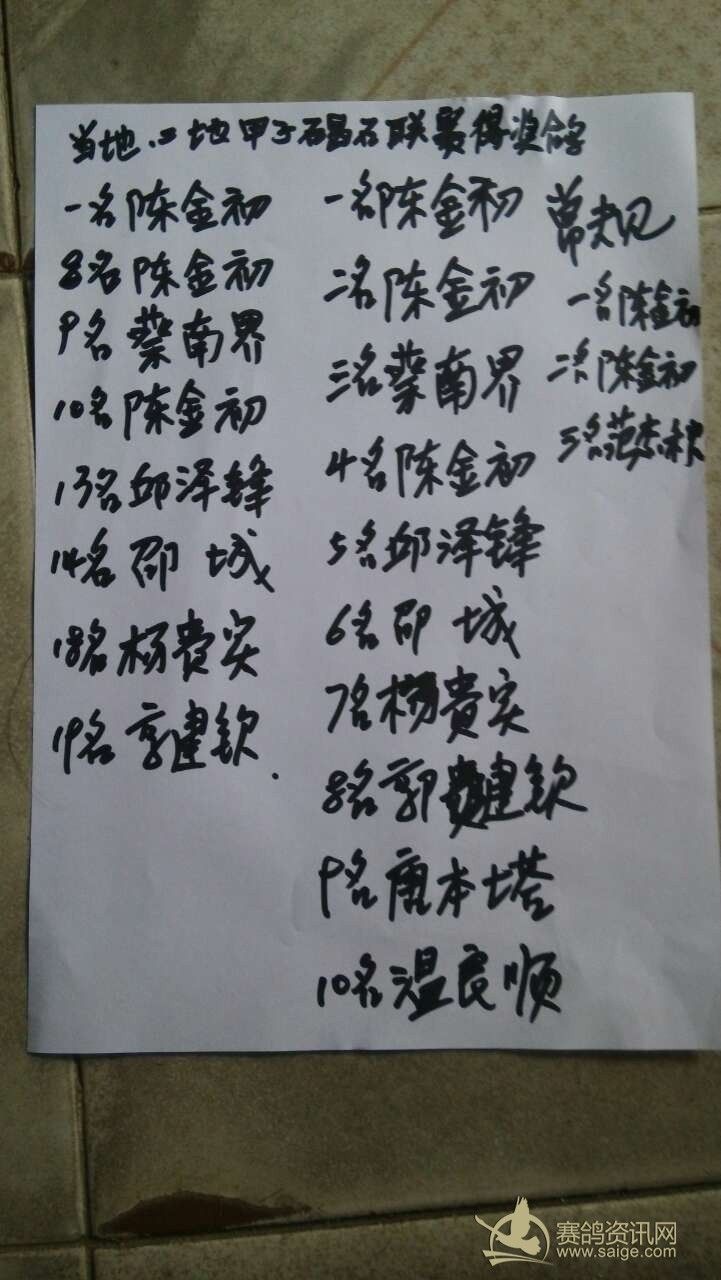 当地.二地甲子碣石联赛得奖鸽
一名陈金初
8名陈金初
9名蔡南界
10名陈金初
13名邱泽锋
14名邵城
18名杨贵实
19名郭建钦.
一名陈金初
二名陈金初
三名蔡南界
4名陈金初
5名邱泽锋
6名邵城
7名杨貴实
8名郭建钦
9名唐本塔
10名温良顺
一名陈金初
二名陈金初
3名范
赛鸽资讯网
www.saige.com